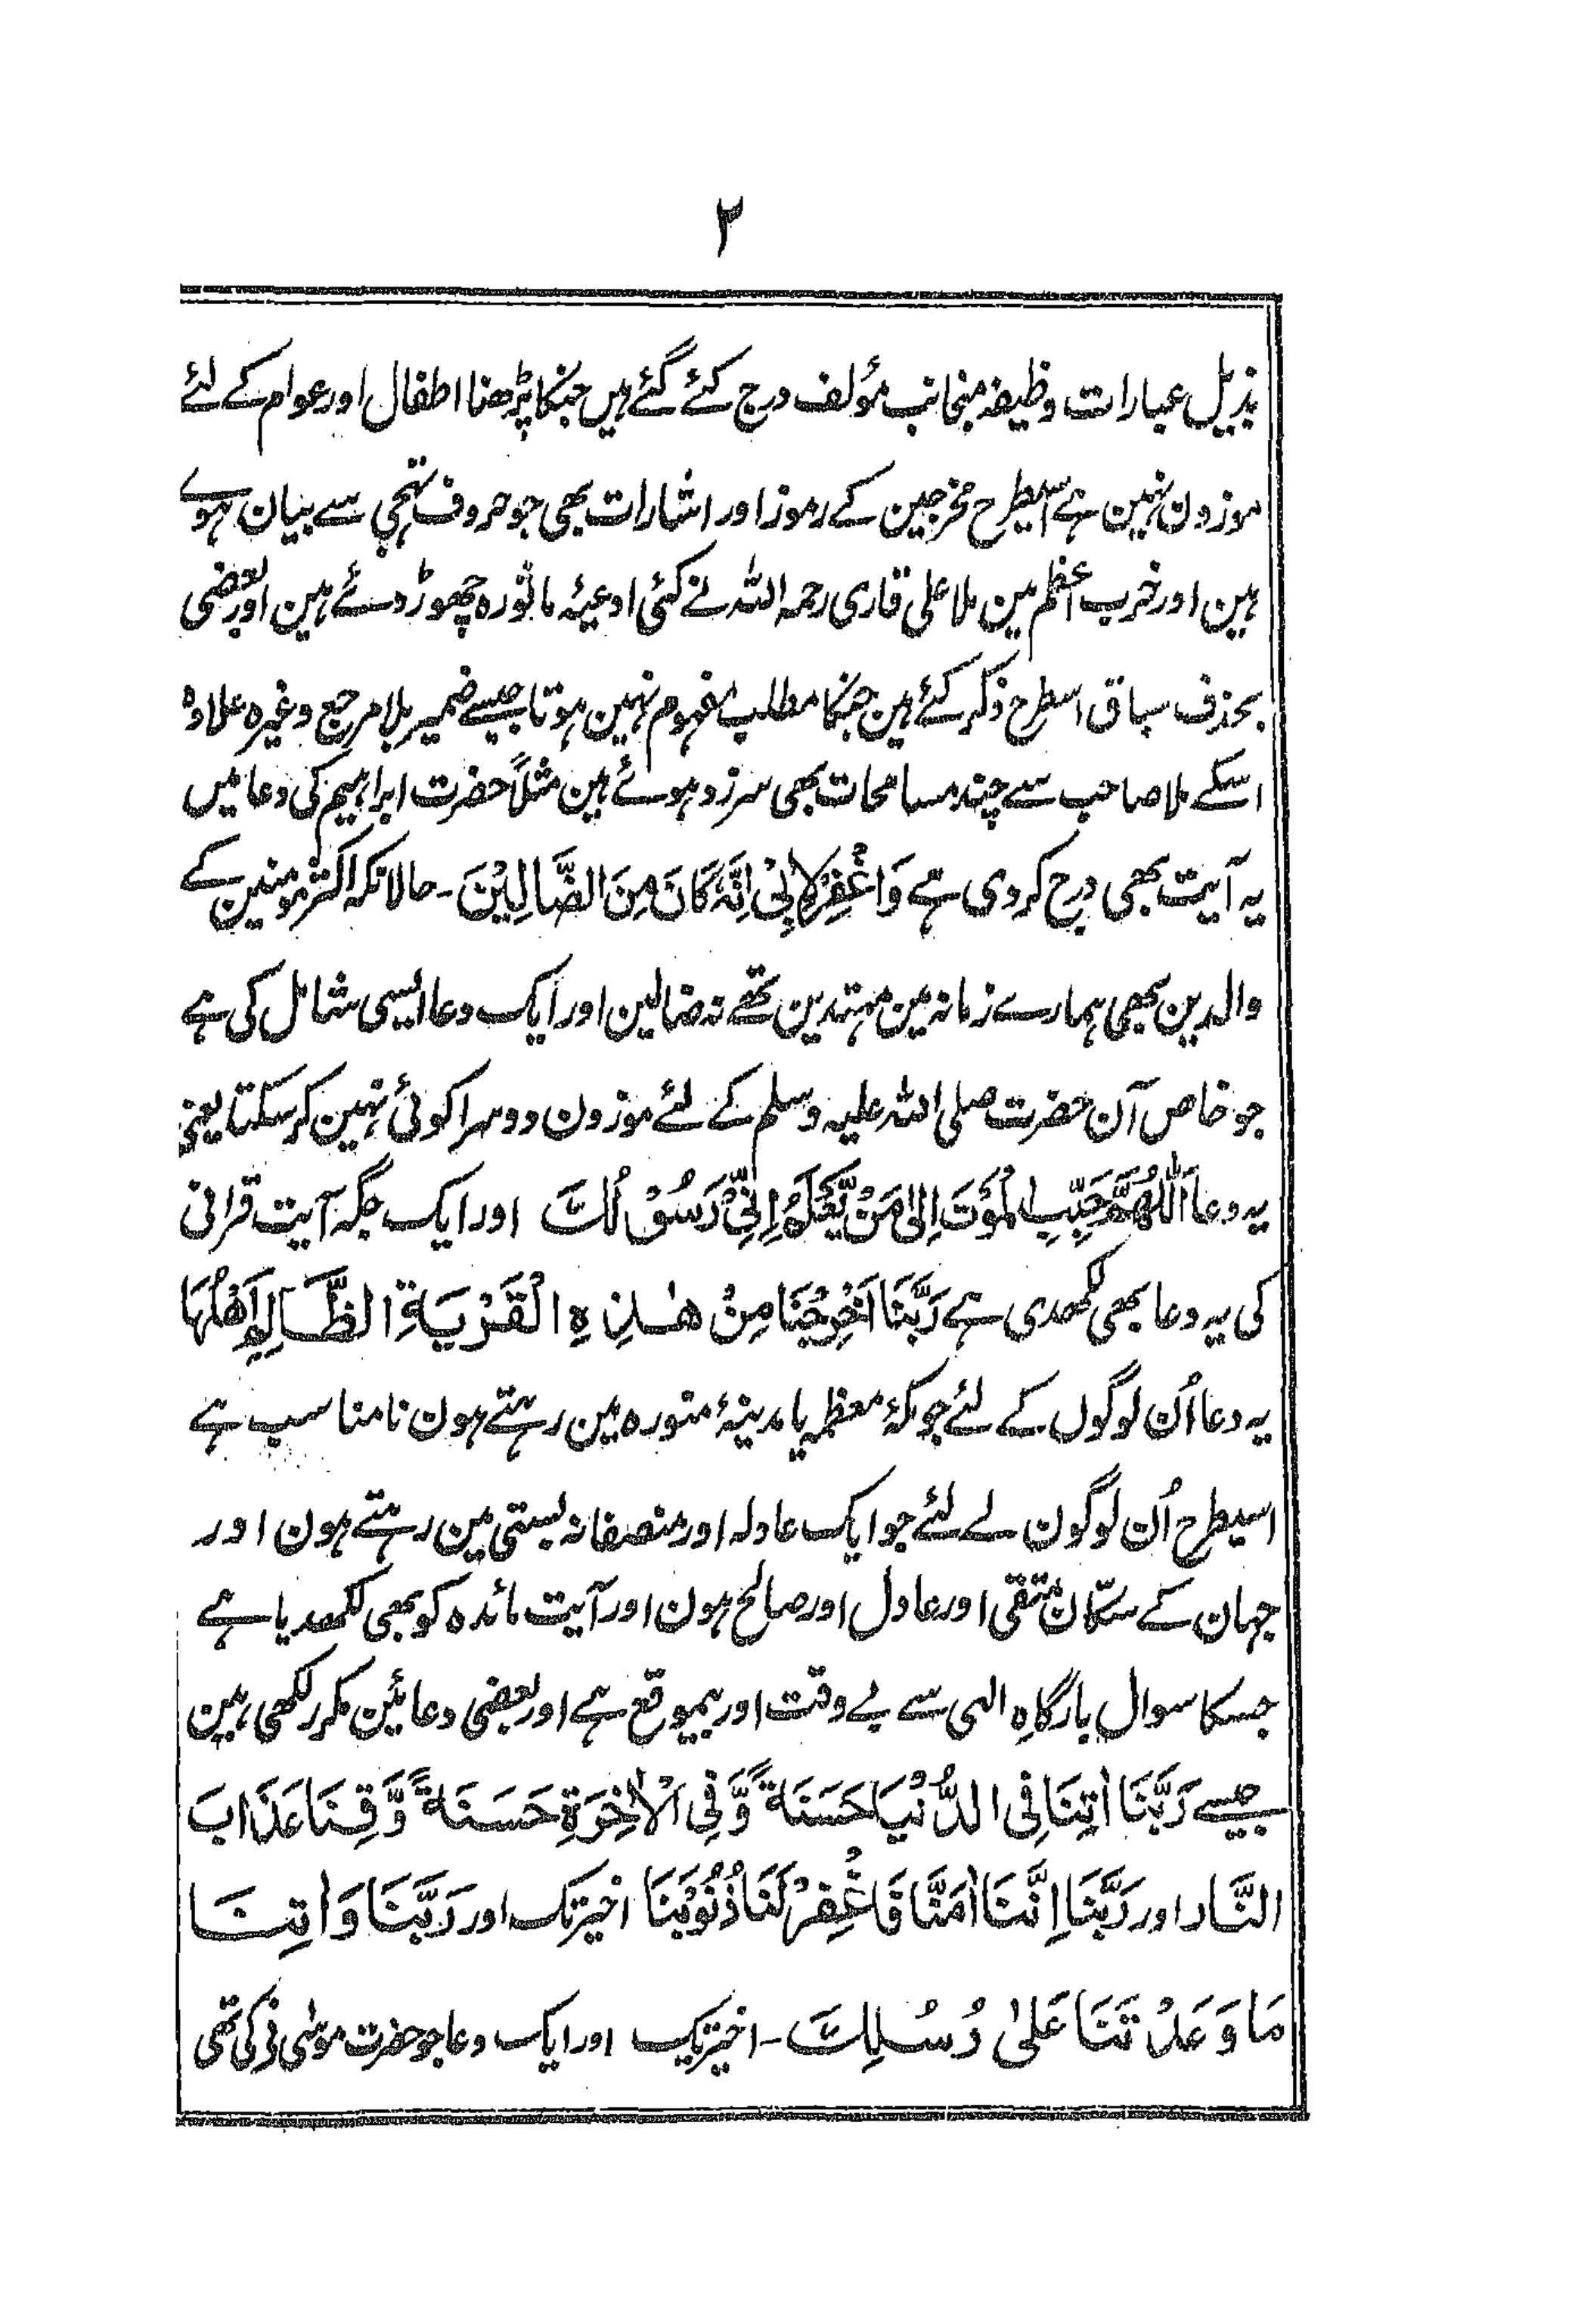 ۲
بذیل عبارات وظیفہ منجانب مؤلف درج کئے گئے ہیں جنکا پڑھنا اطفال اور عوام کے لئے
موزون نہین ہے اسیطرح مخرجین کے رموز اور اشارات بھی جو حروف تہجی سے بیان ہوے
ہین اور حزب اعظم مین ملا علی قاری رحمہ اللہ نے کئی ادعیۂ ماثورہ چھوڑ دئے ہین اور بعضی
بحذف سباق اسطرح ذکر کئے ہین جنکا مطلب مفہوم نہین ہوتا جیسے ضمیر بلا مرجع وغیرہ علاوہ
اسکے ملا صاحب سے چند مسامحات بھی سرزد ہوئے ہین مثلاً حضرت ابراہیم کی دعا میں
یہ آیت بھی درج کردی ہے وَاغْفِرْ لِاَبِیْ اِنَّهٗ كَانَ مِنَ الضَّالِیْنَ ۔ حالانکہ اکثر مومنین کے
والدین بھی ہمارے زمانہ مین مہتدین تھے نہ ضالین اور ایک دعا ایسی شامل کی ہے
جو خاص آن حضرت صلی اللہ علیہ وسلم کے لئے موزون دوسرا کوئی نہین کرسکتا یعنی
یہ دعا اَللّٰهُمَّ حَبِّبِ الْمَوْتَ اِلٰی مَنْ یَّعْلَمُ اِنِّیْ رَسُوْلُكَ اور ایک جگہ آیت قرانی
کی یہ دعا بھی لکھدی ہے رَبَّنَا اَخْرِجْنَا مِنْ هٰذِهِ الْقَرْیَةِ الظَّالِمِ اَهْلُهَا
یہ دعا اُن لوگوں کے لئے جو مکۂ معظمہ یا مدینۂ منورہ مین رہتے ہون نا مناسب ہے
اسیطرح اُن لوگون لے لئے جو ایک عادلہ اور منصفانہ بستی مین رہتے ہون اور
جہان کے سکّان متقی اور عادل اور صالح ہون اور آیت مائدہ کو بھی لکھدیا ہے
جسکا سوال بارگاہِ الہی سے بے وقت اور بیموقع ہے اور بعضی دعائین مکرر لکھی ہین
جیسے رَبَّنَا اٰتِنَا فِی الدُّنْیَا حَسَنَةً وَّفِی الْاٰخِرَةِ حَسَنَةً وَّقِنَا عَذَابَ
النَّار اور رَبَّنَا اِنَّنَا اٰمَنَّا فَاغْفِرْ لَنَا ذُنُوْبَنَا اخیرتک اور رَبَّنَا وَاٰتِنَا
مَا وَعَدْتَنَا عَلٰی رُسُلِكَ ۔ اخیرتک اور ایک دعا جو حضرت موسٰی نے کی تھی